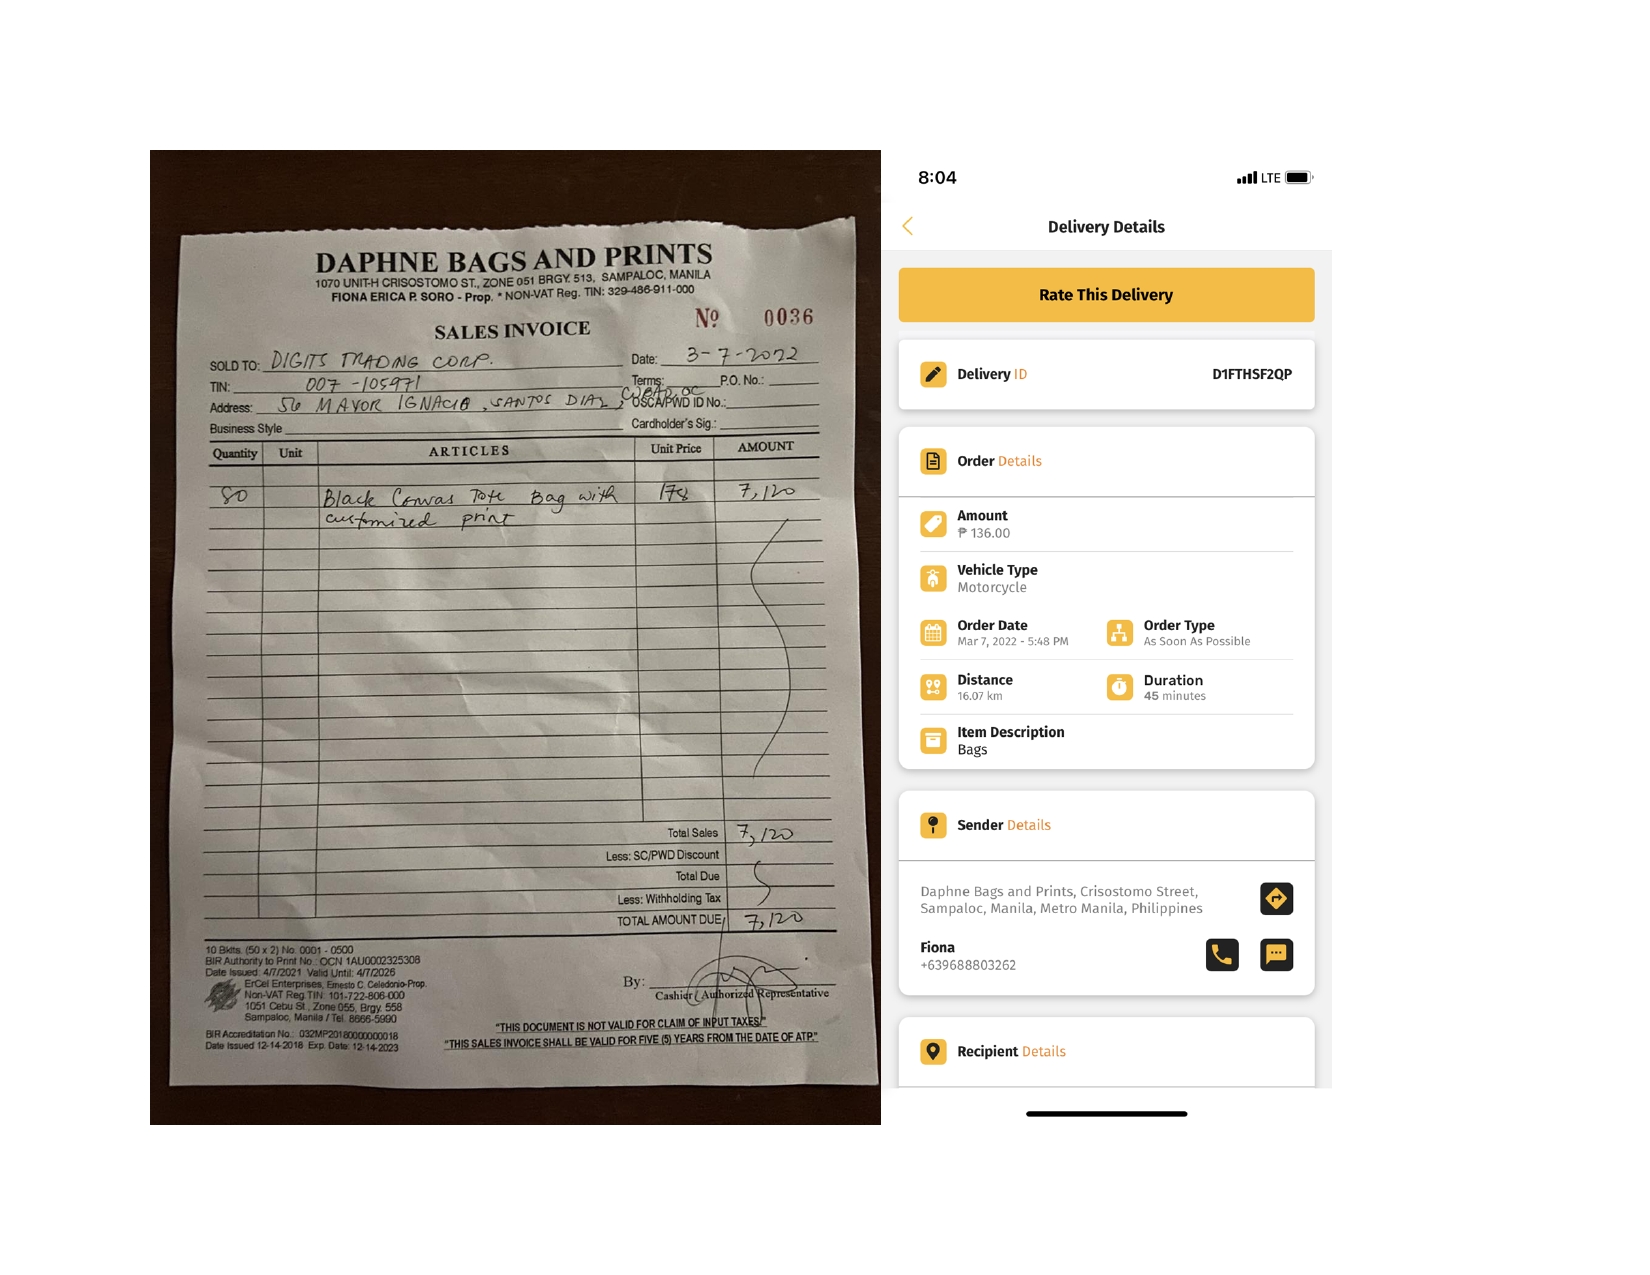 DAPHNE BAGS AND PRINTS
1070 UNIT-H CRISOSTOMO ST., ZONE 051 BRGY. 513, SAMPALOC, MANILA
FIONA ERICA P. SORO - Prop. * NON-VAT Reg. TIN: 329-486-911-000
SALES INVOICE
No 0036
SOLD TO: DIGITS TRADING CORP.
Date: 3-7-2022
TIN: 007-105971
Terms: P.O. No.:
Address: 56 MAYOR IGNACIO, SANTOS DIAZ, CUBAO, QC
OSCA/PWD ID No.:
Business Style
Cardholder's Sig.:
Quantity Unit ARTICLES Unit Price AMOUNT
80 Black Canvas Tote Bag with 178 7,120
customized print
Total Sales 7,120
Less: SC/PWD Discount
Total Due
Less: Withholding Tax
TOTAL AMOUNT DUE 7,120
10 Bklts. (50 x 2) No. 0001 - 0500
BIR Authority to Print No.: OCN 1AU0002325308
Date Issued: 4/7/2021 Valid Until: 4/7/2026
ErCel Enterprises, Ernesto C. Celedonio-Prop.
Non-VAT Reg.TIN: 101-722-806-000
1051 Cebu St., Zone 055, Brgy. 558
Sampaloc, Manila / Tel. 8666-5990
BIR Accreditation No.: 032MP20180000000018
Date Issued 12-14-2018 Exp. Date: 12-14-2023
By:
Cashier / Authorized Representative
"THIS DOCUMENT IS NOT VALID FOR CLAIM OF INPUT TAXES."
"THIS SALES INVOICE SHALL BE VALID FOR FIVE (5) YEARS FROM THE DATE OF ATP."
8:04
LTE
Delivery Details
Rate This Delivery
Delivery ID D1FTHSF2QP
Order Details
Amount
₱ 136.00
Vehicle Type
Motorcycle
Order Date Order Type
Mar 7, 2022 - 5:48 PM As Soon As Possible
Distance Duration
16.07 km 45 minutes
Item Description
Bags
Sender Details
Daphne Bags and Prints, Crisostomo Street,
Sampaloc, Manila, Metro Manila, Philippines
Fiona
+639688803262
Recipient Details